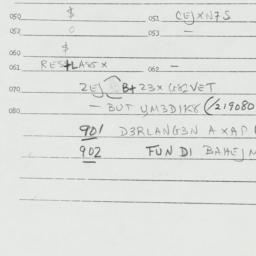 050 $ 051 CEJXN7S
052 0 053 —
060 $
061 RES+LASSX 062 —
070 2EJ B+23X G82VET
— BUT YM3DIK8 (/219080
080
901 D3RLANG3N AXAP
902 FUN DI BAHEJM